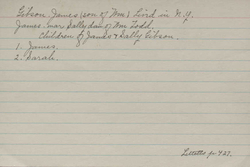 Gibson, James (son of Wm) Liv'd in N.Y.
James mar. Sally dau of Wm Todd.
Children of James & Sally Gibson.
1. James.
2. Sarah.
p. 427.